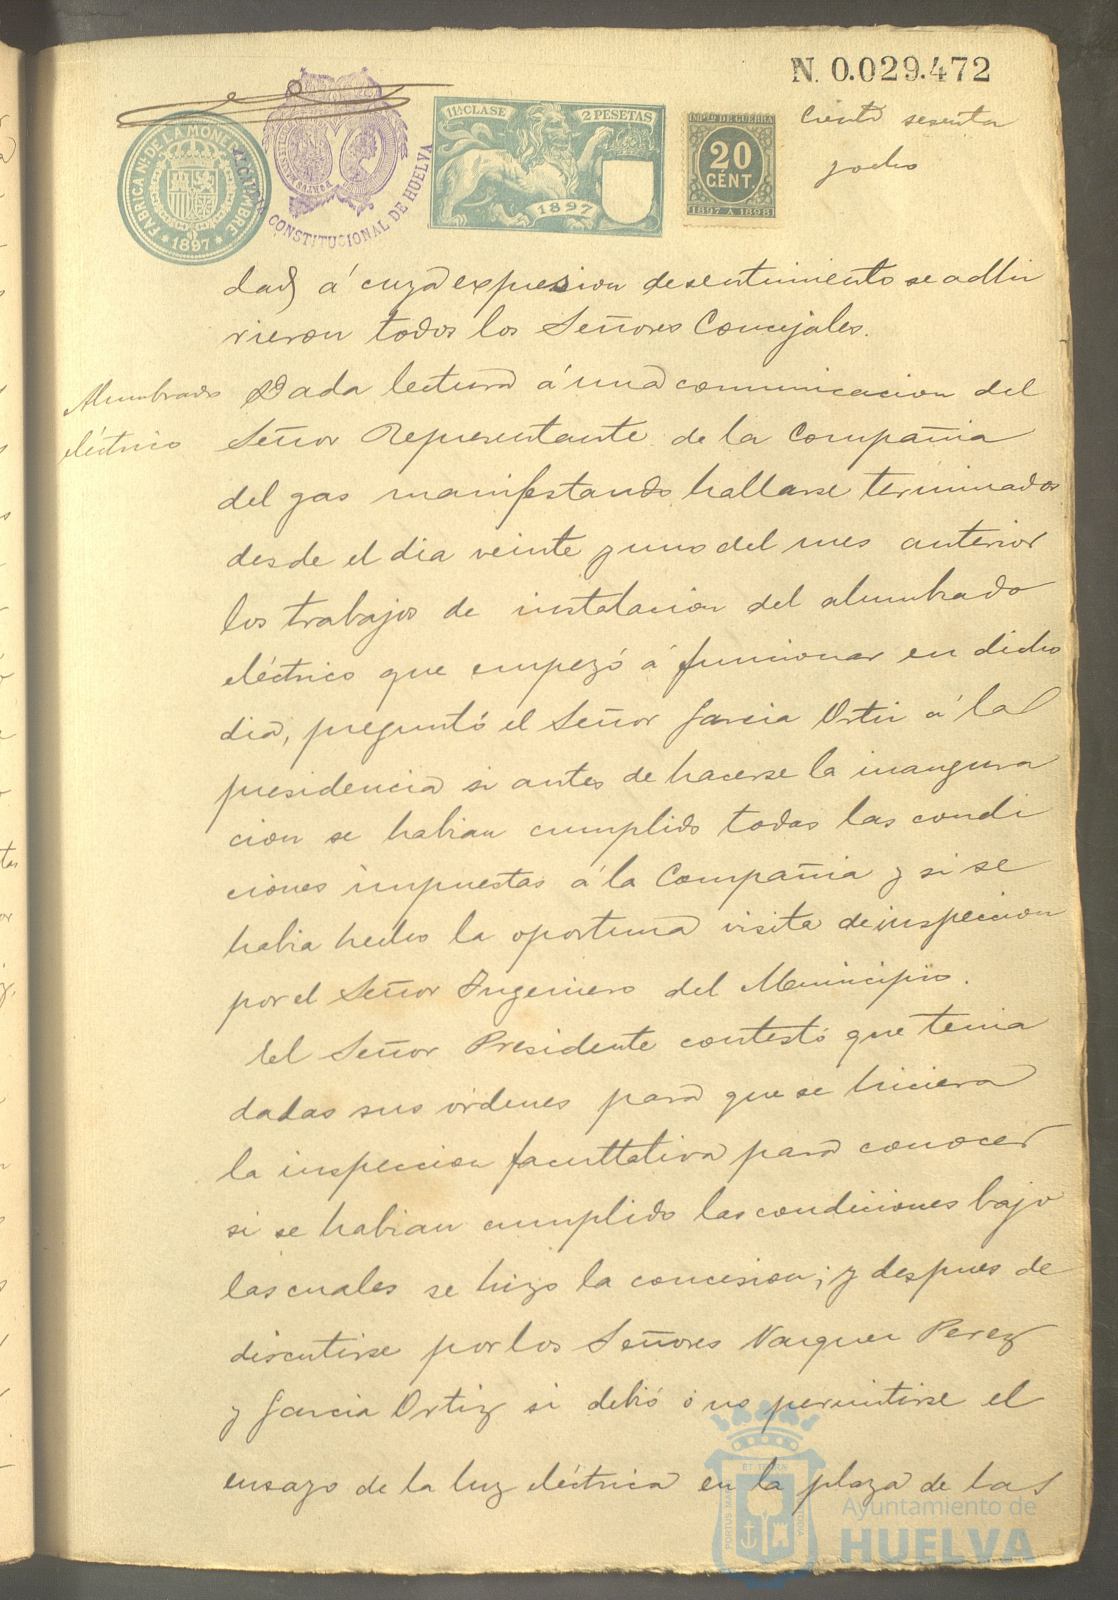 N. 0.029.472
Ciento sesenta
y ocho
FABRICA NL. DE LA MONEDA Y TIMBRE
* 1897 *
ALCALDIA CONSTITUCIONAL DE HUELVA
11ª CLASE 2 PESETAS
1897
IMPTO DE GUERRA
20
CÉNT.
1897 A 1898
dad á cuya expresion de sentimiento se adhi
rieron todos los Señores Concejales.
Alumbrado
eléctrico
Dada lectura á una comunicacion del
Señor Representante de la Compañia
del gas manifestando hallarse terminados
desde el dia veinte y uno del mes anterior
los trabajos de instalacion del alumbrado
eléctrico que empezó á funcionar en dicho
dia, preguntó el Señor Garcia Ortiz á la
presidencia si antes de hacerse la inaugura
cion se habian cumplido todas las condi
ciones impuestas á la Compañia y si se
habia hecho la oportuna visita de inspeccion
por el Señor Ingeniero del Municipio.
El Señor Presidente contestó que tenia
dadas sus órdenes para que se hiciera
la inspeccion facultativa para conocer
si se habian cumplido las condiciones bajo
las cuales se hizo la concesion; y despues de
discutirse por los Señores Vazquez Perez
y Garcia Ortiz si debió ó no permitirse el
ensayo de la luz eléctrica en la plaza de las
Ayuntamiento de
HUELVA